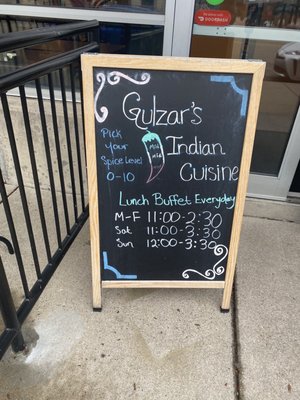 DOORDASH
Gulzar's
Indian
Cuisine
Pick
your
Spice Level
0-10
Mild
Lunch Buffet Everyday
M-F 11:00-2:30
Sat 11:00-3:30
Sun 12:00-3:30